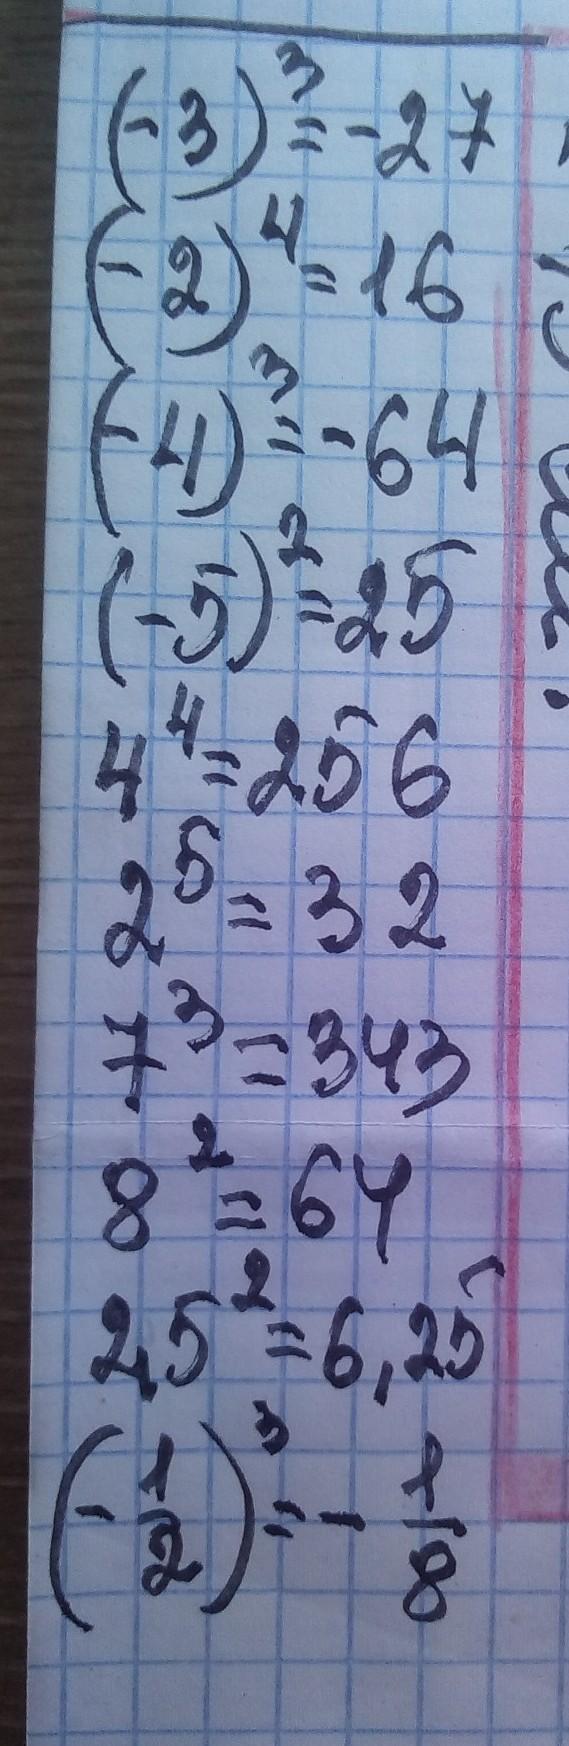 (-3)³=-27
(-2)⁴=16
(-4)³=-64
(-5)²=25
4⁴=256
2⁵=32
7³=343
8²=64
2,5²=6,25
(-1/2)³=-1/8